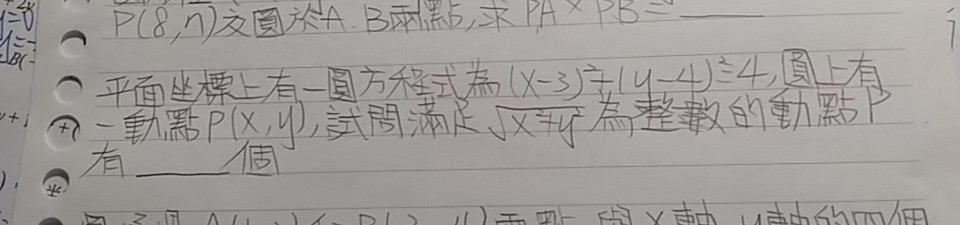 P(8,n)交圓於A.B兩點,求PA×PB=____
平面坐標上有一圓方程式為(x-3)²+(y-4)²=4,圓上有
一動點P(x,y),試問滿足√x²+y²為整數的動點P
有____個